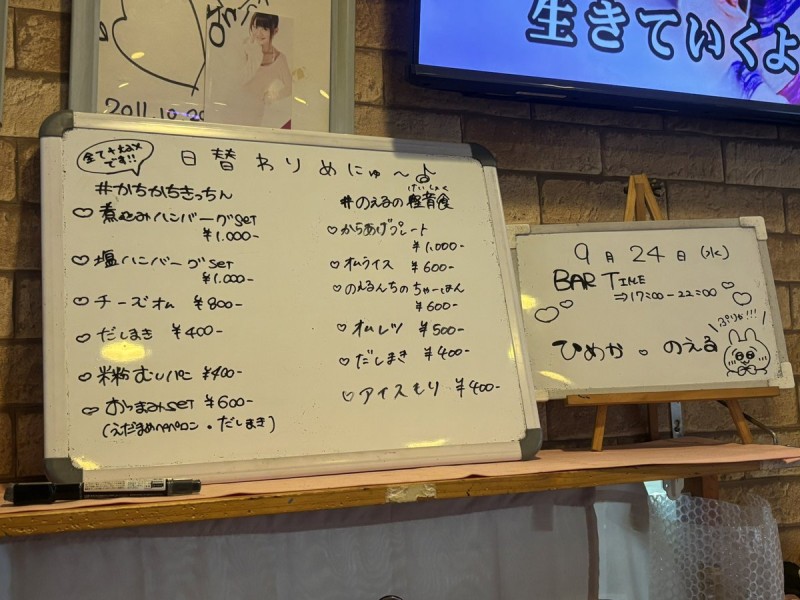 生きていくよ
2011.10.20
全て+tax
です!!
日替わりめにゅ〜♪
#かちかちきっちん
♡煮込みハンバーグSET
¥1,000-
♡塩ハンバーグSET
¥1,000-
♡チーズオム ¥800-
♡だしまき ¥400-
♡米粉むしパン ¥400-
♡おつまみSET ¥600-
(えだまめペペロン・だしまき)
#のえるの軽音食
けいしょく
♡からあげプレート
¥1,000-
♡オムライス ¥600-
♡のえるんちのちゃーはん
¥600-
♡オムレツ ¥500-
♡だしまき ¥400-
♡アイスもり ¥400-
9月24日(水)
BAR TIME
⇒17:00-22:00
ひめか。のえる
ぷりっ!!!